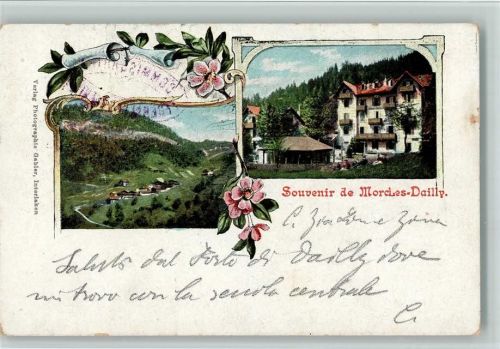 Verlag Photographie Gabler, Interlaken
Souvenir de Morcles-Dailly.
C.
Saluti dal Forte di Dailly dove
mi trovo con la scuola centrale
C.